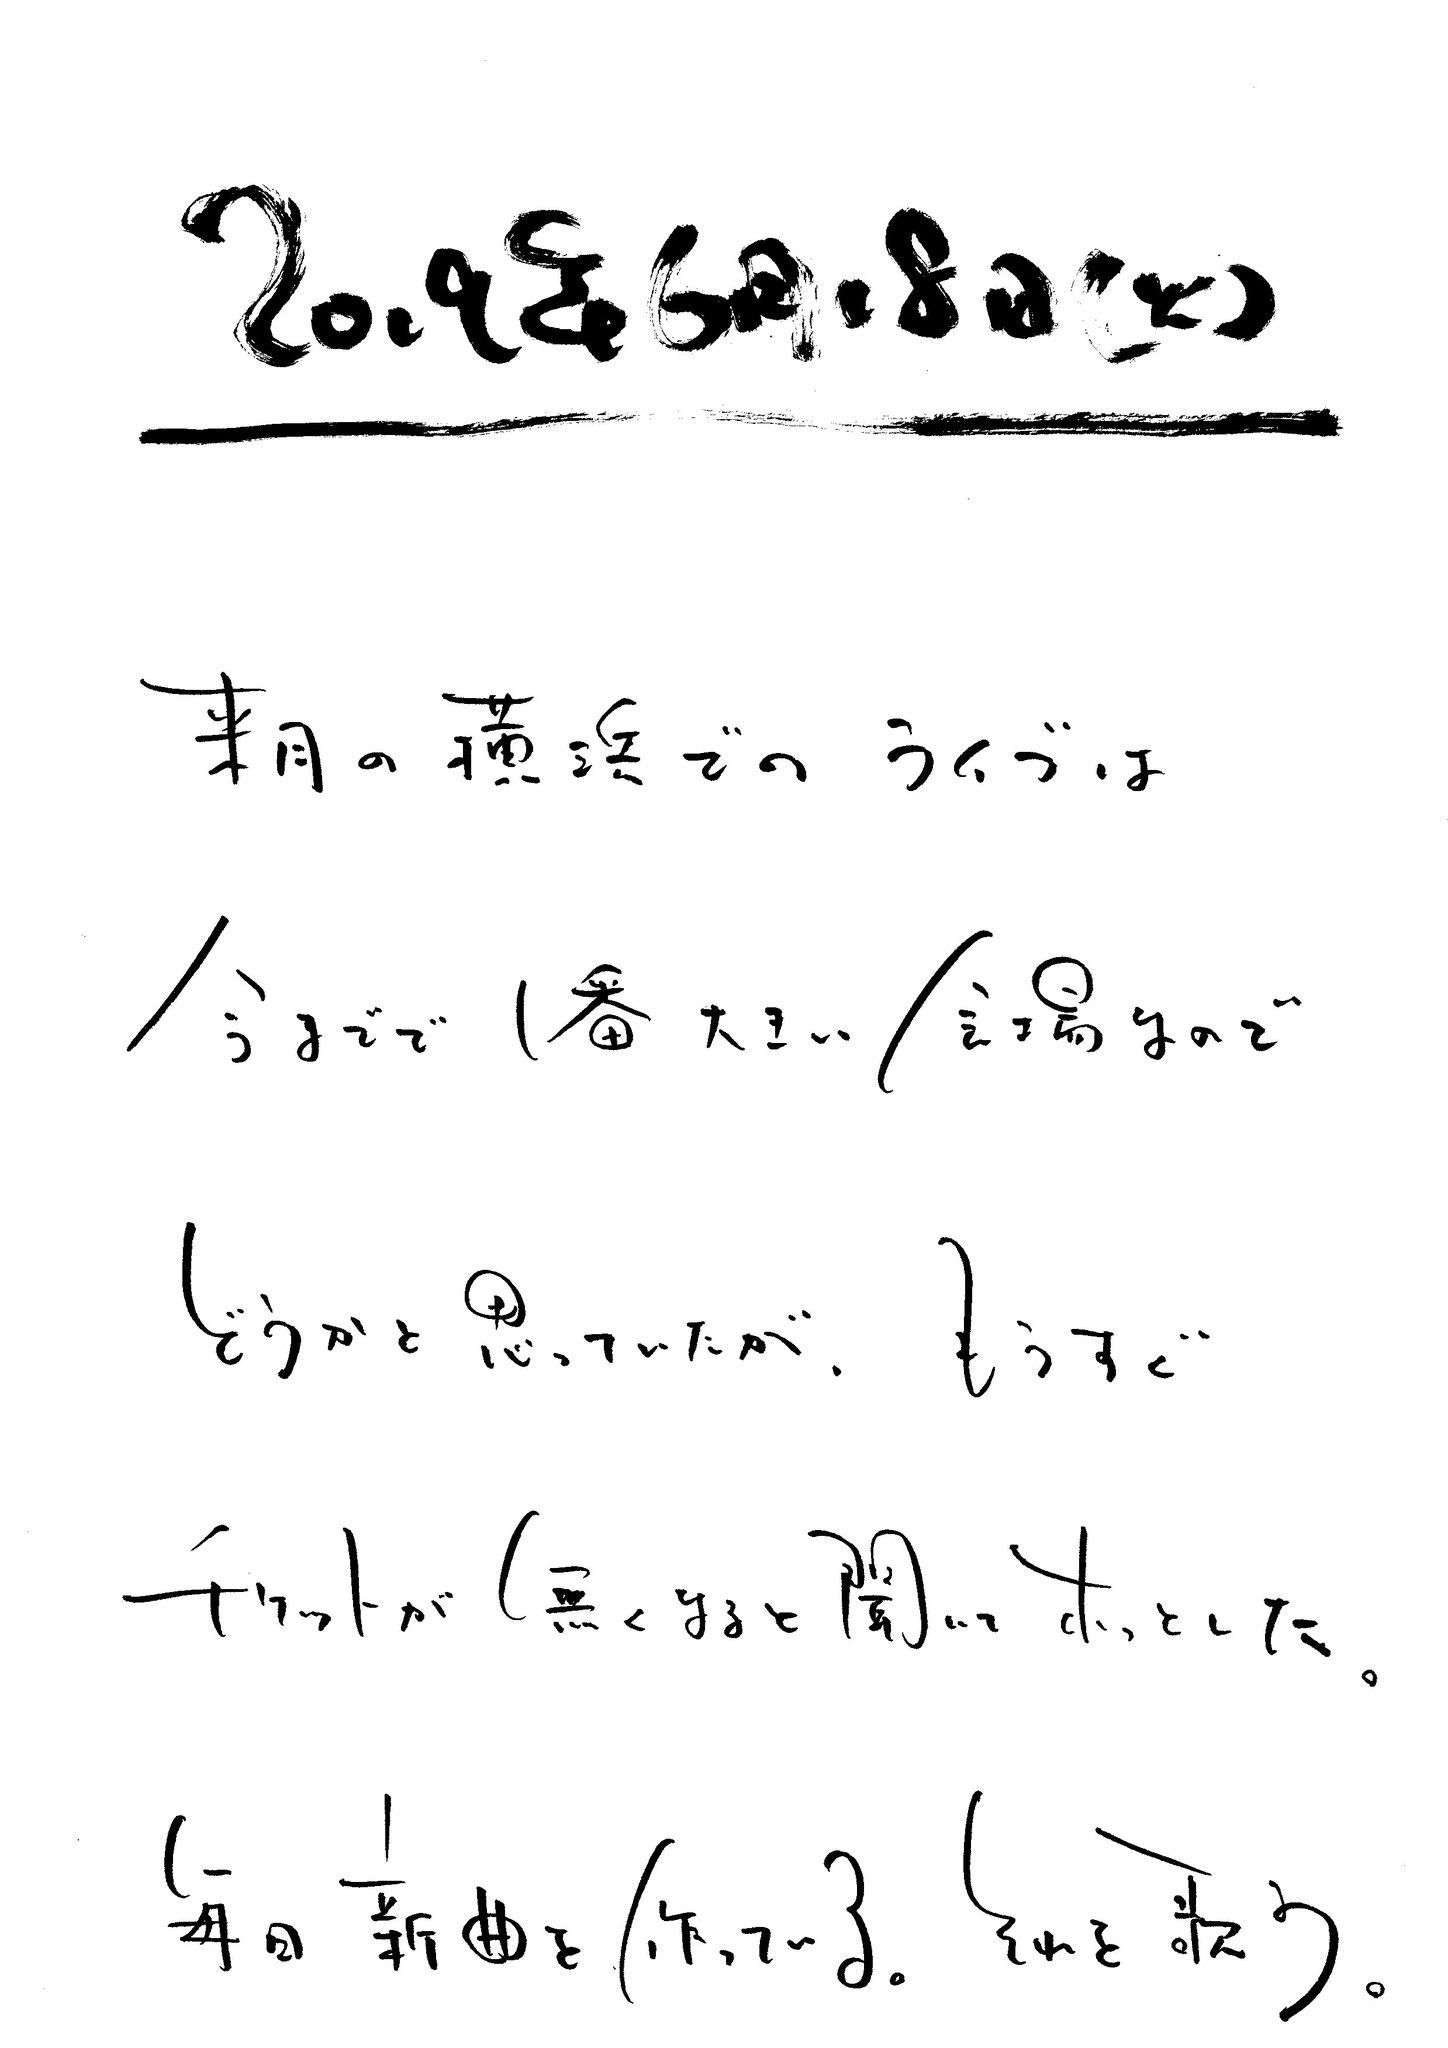 2019年6月18日(火)
来月の横浜でのライブは
今までで1番大きい会場なので
どうかと思っていたが、もうすぐ
チケットが無くなると聞いてホッとした。
毎日新曲を作っている。それを歌う。